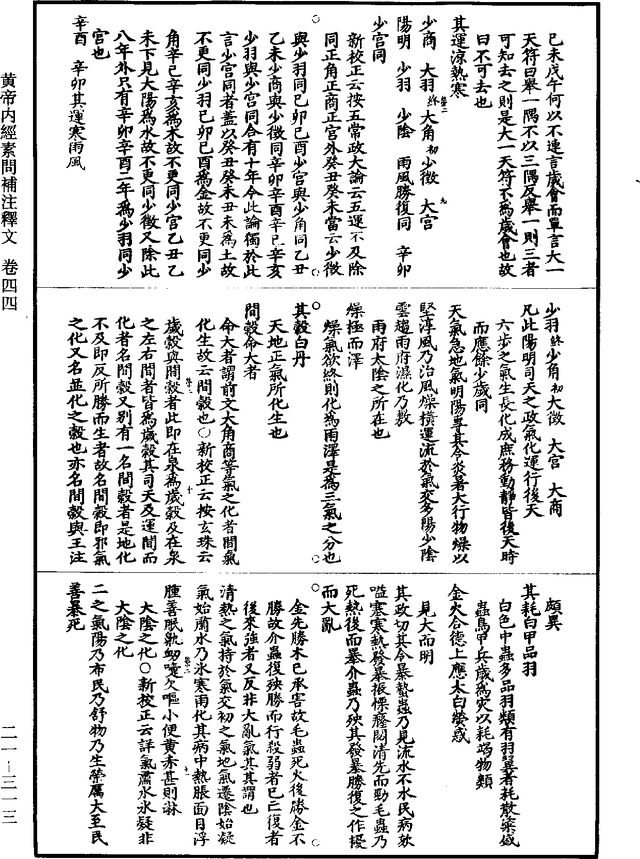 己未戊午何以不連言歲會而單言大一
天符曰舉一隅不以三隅反舉一則三者
可知去之則是大一天符不為歲會也故
曰不可去也
其運涼熱寒
少商　大羽終　大角初　少徵　大宮
陽明　少羽　少陰　雨風勝復同　辛卯
少宮同
新校正云按五常政大論云五運不及除
同正角正商正宮外癸丑癸未當云少徵
與少羽同己卯己酉少宮與少角同乙丑
乙未少商與少徵同辛卯辛酉辛巳辛亥
少羽與少宮同合有十年今此論獨於此
言少宮同者蓋以癸丑癸未丑未為土故
不更同少羽己卯己酉為金故不更同少
角辛巳辛亥為木故不更同少宮乙丑乙
未下見大陽為水故不更同少徵又除此
八年外只有辛卯辛酉二年為少羽同少
宮也
辛酉　辛卯其運寒雨風
少羽終　少角初　大徵　大宮　大商
凡此陽明司天之政氣化運行後天
六步之氣生長化成庶務動靜皆後天時
而應餘少歲同
天氣急地氣明陽專其令炎暑大行物燥以
堅淳風乃治風燥橫運流於氣交多陽少陰
雲趨雨府濕化乃敷
雨府太陰之所在也
燥極而澤
燥氣欲終則化為雨澤是為三氣之分也
其穀白丹
天地正氣所化生也
間穀命大者
命大者謂前文大角商等氣之化者間氣
化生故云間穀也○新校正云按玄珠云
歲穀與間穀者此即在泉為歲穀及在泉
之左右間者皆為歲穀其司天及運間而
化者名間穀又別有一名間穀者是地化
不及即反所勝而生者故名間穀即邪氣
之化又名並化之穀也亦名間穀與王注
頗異
其耗白甲品羽
白色甲蟲多品羽類有羽翼者耗散粢盛
蟲鳥甲兵歲為災以耗竭物類
金火合德上應太白熒惑
見大而明
其政切其令暴蟄蟲乃見流水不冰民病欬
嗌塞寒熱發暴振慄癃閟清先而勁毛蟲乃
死熱後而暴介蟲乃殃其發暴勝復之作擾
而大亂
金先勝木已承害故毛蟲死火後勝金不
勝故介蟲復殃勝而行殺弱者已亡復者
後來強者又死非大亂氣其何謂也
清熱之氣持於氣交初之氣地氣遷陰始凝
氣始肅水乃冰寒雨化其病中熱脹面目浮
腫善眠鼽衄嚏欠嘔小便黃赤甚則淋
大陰之化○新校正云詳氣肅水冰疑非
大陰之化
二之氣陽乃布民乃舒物乃生榮厲大至民
善暴死
黄帝内經素問補注釋文　卷四四
二一—三一三